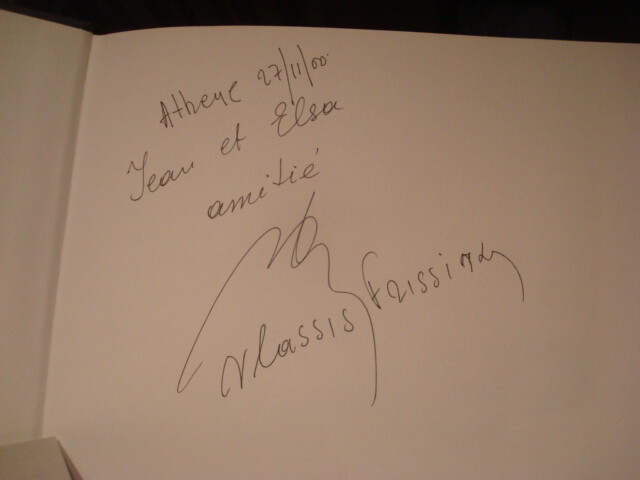 Athene 27/11/00
Jean et Elsa
amitié
Vlassis Frissiras